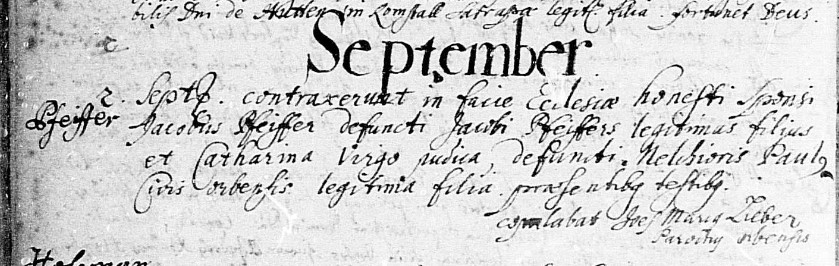 bilis Dni de Hutten in Romstall Satrapæ legit: filia. fortunet Deus.
September
2. Septb. contraxerunt in facie Ecclesiæ honesti sponsi
Pfeiffer Jacobus Pfeiffer defuncti Jacobi Pfeiffers legitimus filius
et Catharina Virgo pudica, defuncti Melchioris Paul
Civis orbensis legitima filia. præsentibq testibq.
copulabat Joes Zieber
Parochq orbensis